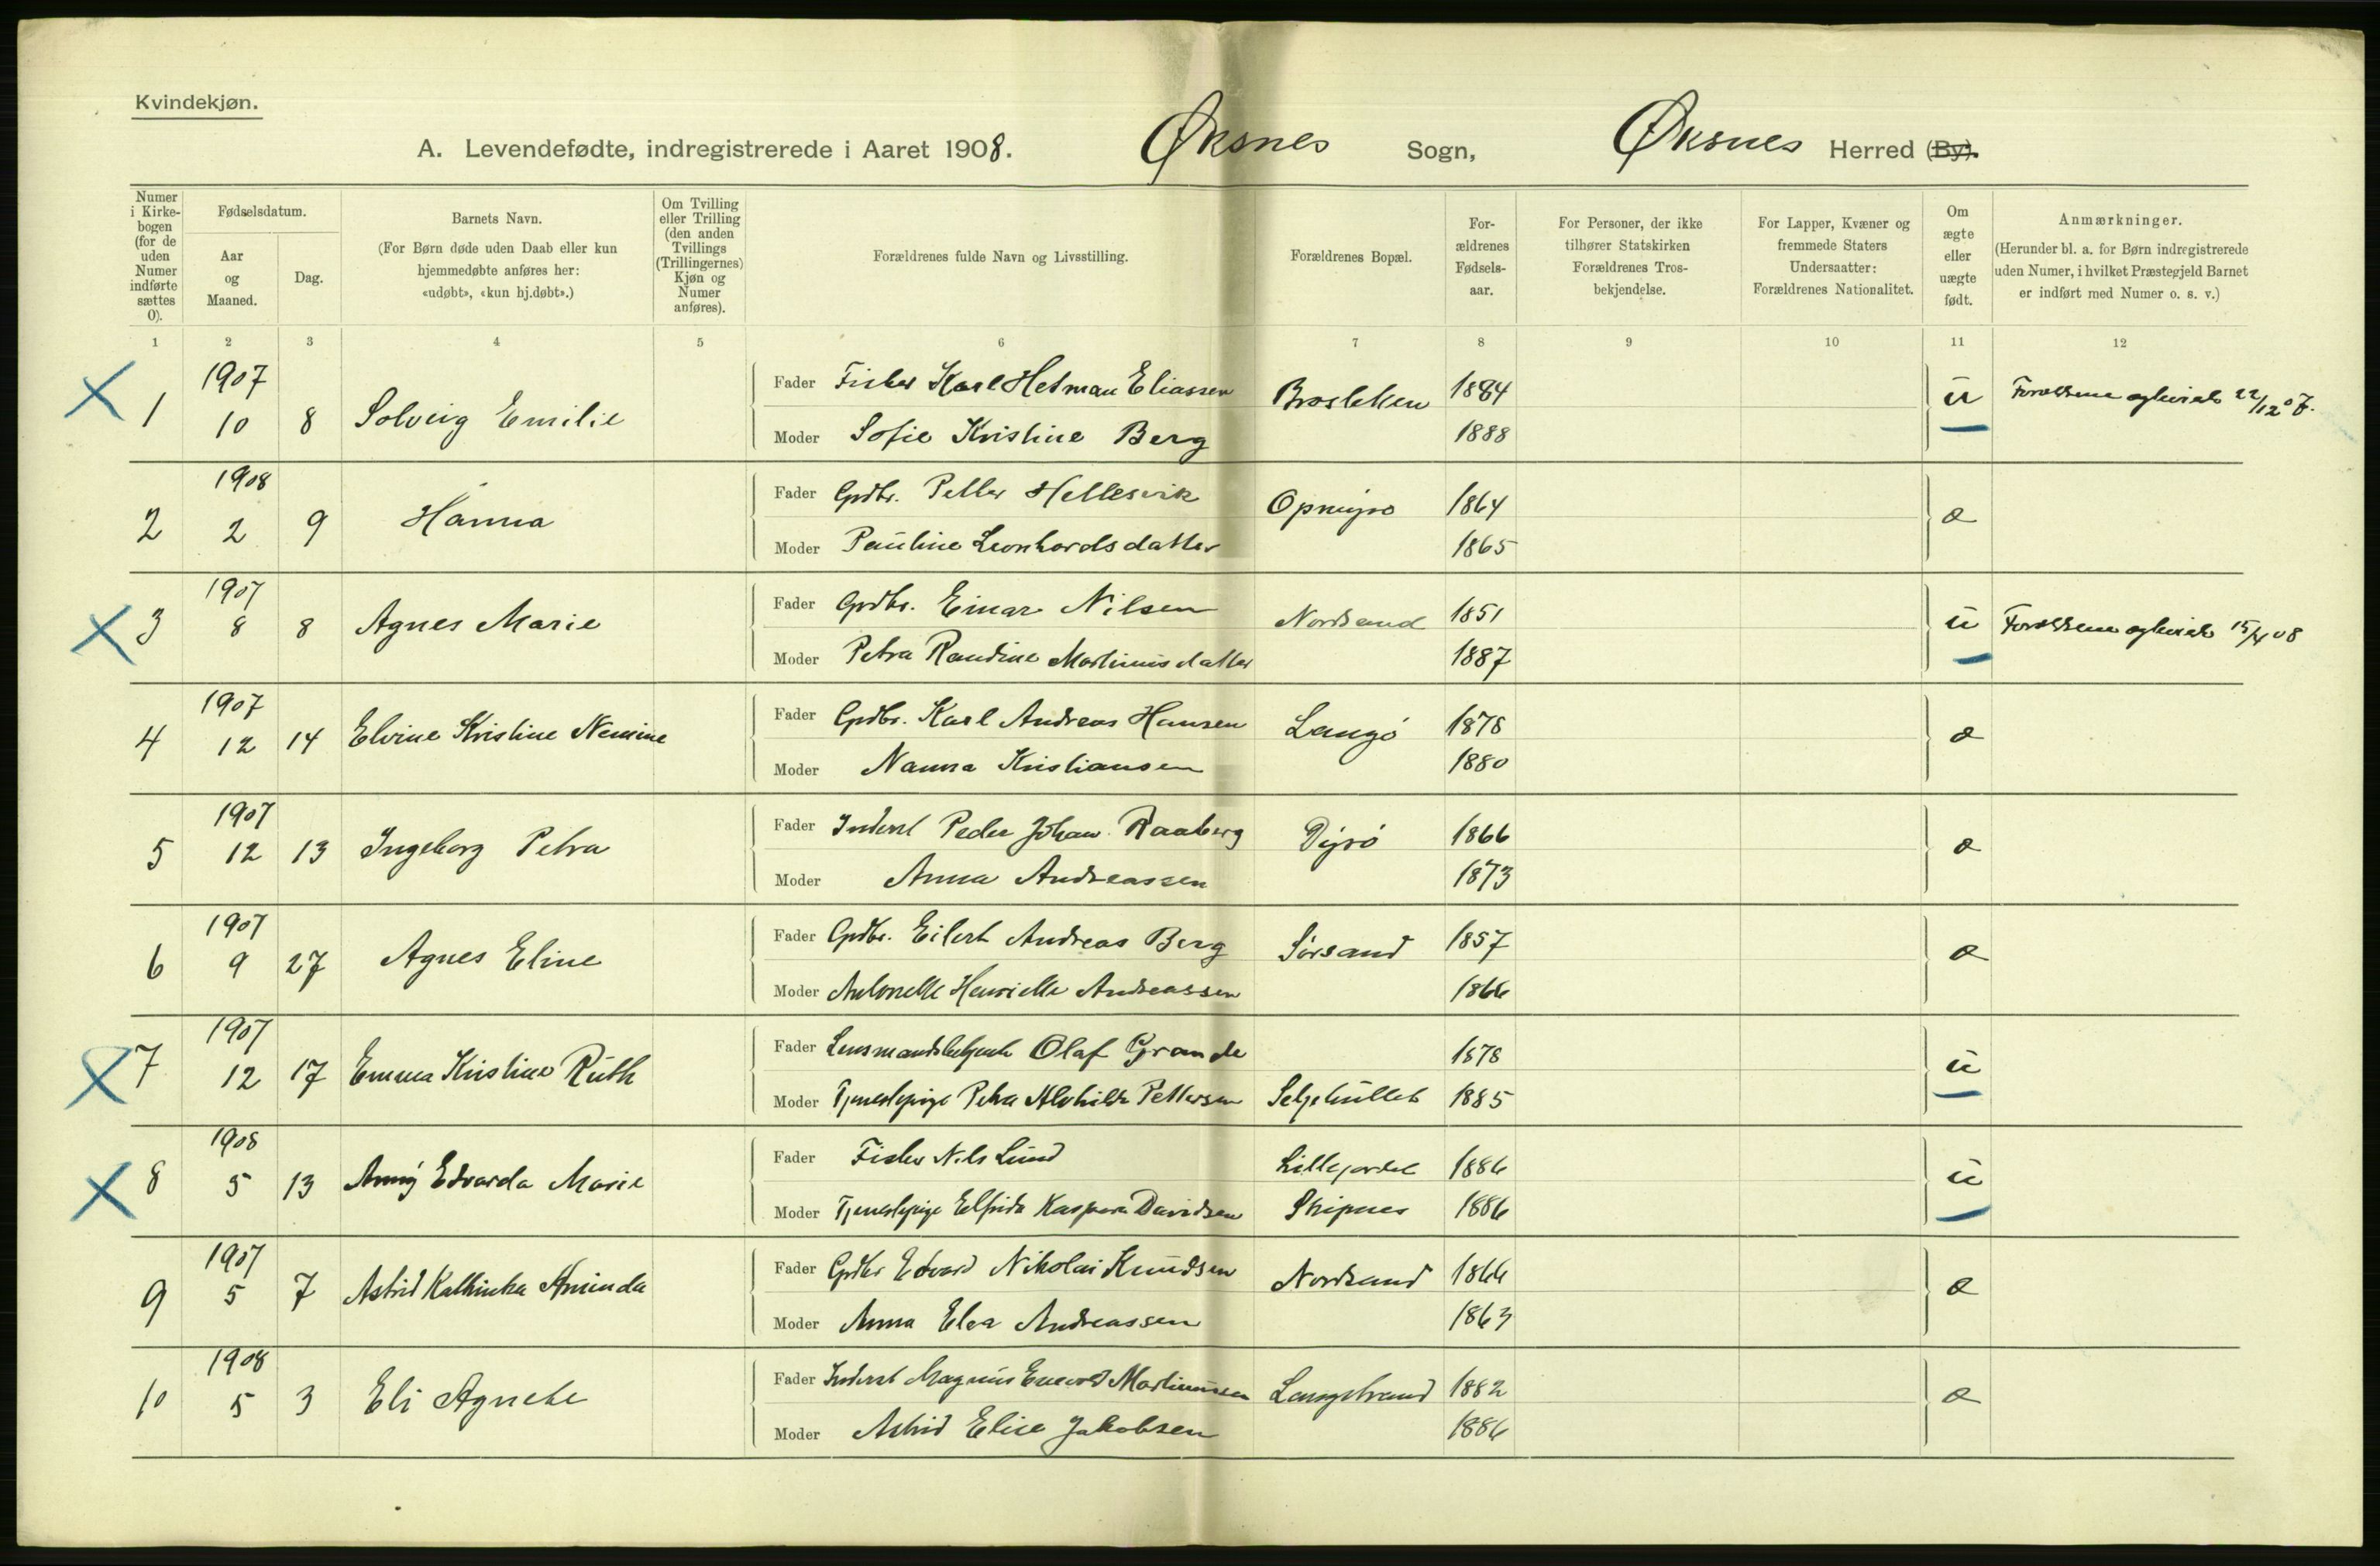 Kvindekjøn.
A. Levendefødte, indregistrerede i Aaret 1908. Øksnes Sogn, Øksnes Herred (By).
Numer i Kirkebogen (for de uden Numer indførte sættes 0).
Fødselsdatum.
Aar og Maaned.
Dag.
Barnets Navn.
(For Børn døde uden Daab eller kun
hjemmedøbte anføres her:
«udøbt», «kun hj.døbt».)
Om Tvilling
eller Trilling
(den anden
Tvillings
(Trillingernes)
Kjøn og
Numer
anføres).
Forældrenes fulde Navn og Livsstilling.
Forældrenes Bopæl.
For-
ældrenes
Fødsels-
aar.
For Personer, der ikke
tilhører Statskirken
Forældrenes Tros-
bekjendelse.
For Lapper, Kvæner og
fremmede Staters
Undersaatter:
Forældrenes Nationalitet.
Om
ægte
eller
uægte
født.
Anmærkninger.
(Herunder bl. a. for Børn indregistrerede
uden Numer, i hvilket Præstegjeld Barnet
er indført med Numer o. s. v.)
1 2 3 4 5 6 7 8 9 10 11 12
1907
1 10 8 Solveig Emilie
Fader Fisker Karl Hetman Eliassen 1884 u Forældrene ægteviet 22/12 07.
Moder Sofie Kristine Berg 1888
1908
2 2 9 Hanna
Fader Grdbr. Petter Hellesvik 1864 æ
Moder Pauline Leonhardsdatter 1865
1907
3 8 8 Agnes Marie
Fader Grdbr. Einar Nilsen Nordsand 1851 u Forældrene ægteviet 15/4 08
Moder Petra Randine Martinusdatter 1887
1907
4 12 14 Elvine Kristine Nemine
Fader Grdbr. Karl Andreas Hansen Langö 1878 æ
Moder Nanna Kristiansen 1880
1907
5 12 13 Ingeborg Petra
Fader Inderst Peder Johan Raaberg Dyrö 1866 æ
Moder Anna Andreassen 1873
1907
6 9 27 Agnes Eline
Fader Grdbr. Eilert Andreas Berg Sörsand 1857 æ
Moder Antonette Henriette Andreassen 1866
1907
7 12 17 Emma Kristine Ruth
Fader Lensmandsbetjent Olaf Grande 1878 u
Moder Tjenestepige Petra Alvhilde Pettersen 1885
1908
8 5 13 Anny Edvarda Marie
Fader Fisker Nils Lund 1886 u
Moder Tjenestepige Elfrida Kaspara Davidsen Skipnes 1886
1907
9 5 7 Astrid Kathinka Aminda
Fader Grdbr Edvard Nikolai Knudsen Nordsand 1866 æ
Moder Anna Elea Andreassen 1863
1908
10 5 3 Eli Agnete
Fader Inderst Magnus Enevold Martinussen Langstrand 1882 æ
Moder Astrid Elise Jakobsen 1886